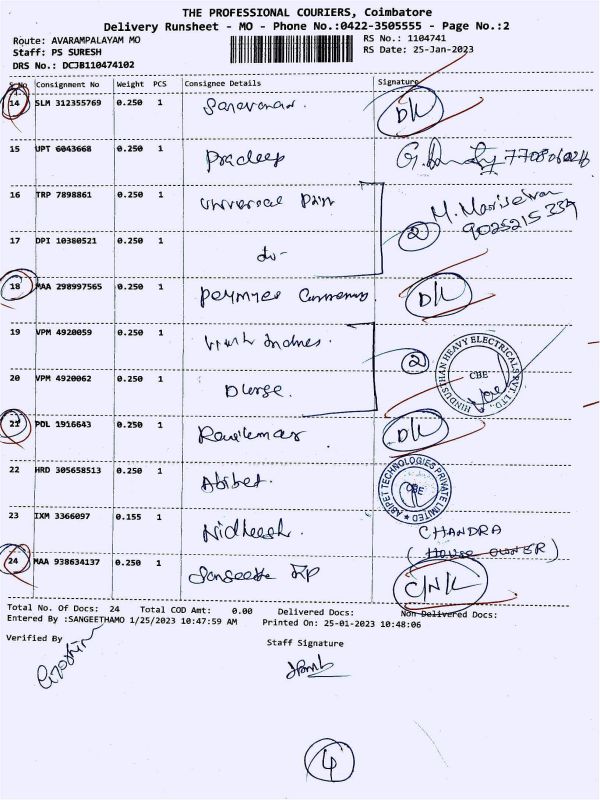 THE PROFESSIONAL COURIERS, Coimbatore
Delivery Runsheet - MO - Phone No.:0422-3505555 - Page No.:2
Route: AVARAMPALAYAM MO
RS No.: 1104741
Staff: PS SURESH
RS Date: 25-Jan-2023
DRS No.: DCJB110474102
S.No Consignment No Weight PCS Consignee Details Signature
14 SLM 312355769 0.250 1 Saravanan D/L
15 UPT 6043668 0.250 1 Pradeep
16 TRP 7898861 0.250 1 Universal
17 DPI 10380521 0.250 1 do - 2
9025215334
18 MAA 298997565 0.250 1 D/L
19 VPM 4920059 0.250 1 2
HINDUSTHAN HEAVY ELECTRICALS PVT LTD.,
CBE
20 VPM 4920062 0.250 1
21 POL 1916643 0.250 1 Ravikumar D/L
22 HRD 305658513 0.250 1 Abibet.
ABIPET TECHNOLOGIES PRIVATE LIMITED
CBE
23 IXM 3366097 0.155 1 Nidheesh. CHANDRA
(HOUSE OWNER)
24 MAA 938634137 0.250 1 C/N/L
Total No. Of Docs: 24 Total COD Amt: 0.00 Delivered Docs: Non Delivered Docs:
Entered By :SANGEETHAMO 1/25/2023 10:47:59 AM Printed On: 25-01-2023 10:48:06
Verified By
Staff Signature
4